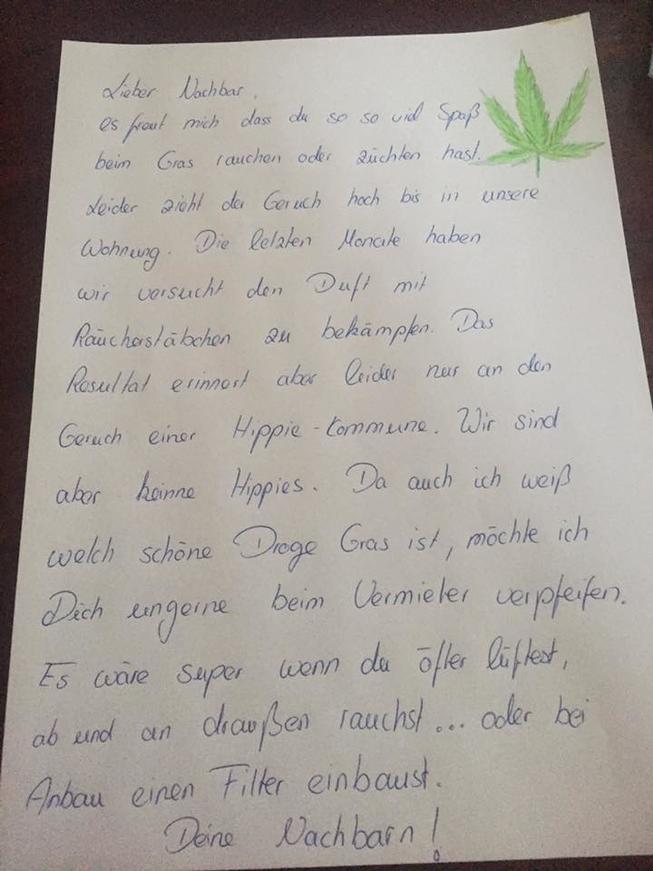 Lieber Nachbar,
es freut mich dass du so so viel Spaß
beim Gras rauchen oder züchten hast.
Leider zieht der Geruch hoch bis in unsere
Wohnung. Die letzten Monate haben
wir versucht den Duft mit
Räucherstäbchen zu bekämpfen. Das
Resultat erinnert aber leider nur an den
Geruch einer Hippie-Kommune. Wir sind
aber keinne Hippies. Da auch ich weiß
welch schöne Droge Gras ist, möchte ich
Dich ungerne beim Vermieter verpfeifen.
Es wäre super wenn du öfter lüftest,
ab und an draußen rauchst... oder bei
Anbau einen Filter einbaust.
Deine Nachbarn!